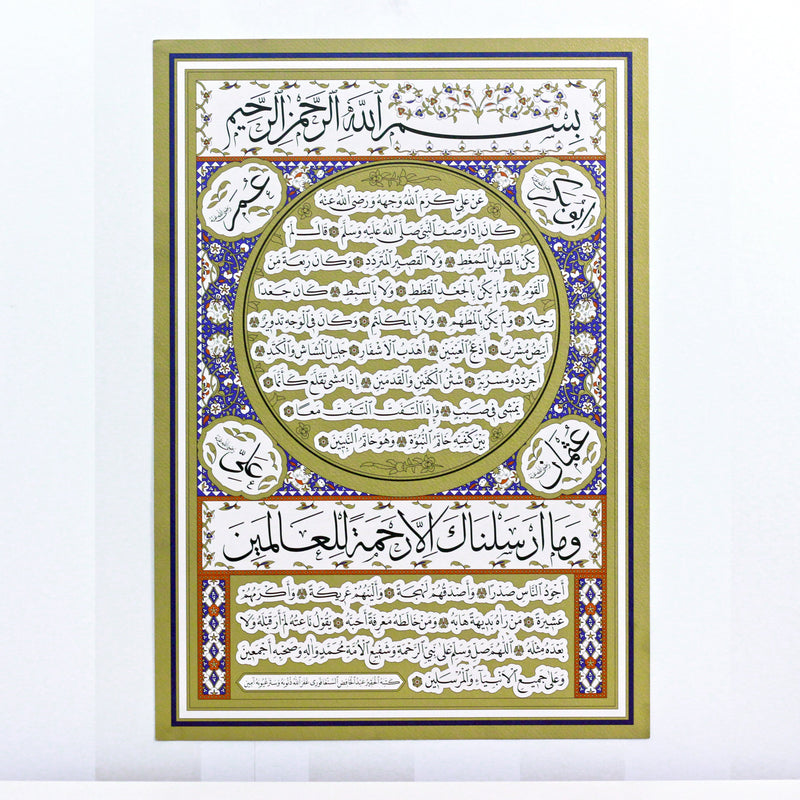 بسم الله الرحمن الرحيم
أبو بكر رضي الله عنه
عمر رضي الله عنه
عن علي كرم الله وجهه ورضي الله عنه
كان إذا وصف النبي صلى الله عليه وسلم قال لم
يكن بالطويل الممغط ولا القصير المتردد وكان ربعة من
القوم ولم يكن بالجعد القطط ولا بالسبط كان جعدا
رجلا ولم يكن بالمطهم ولا بالمكلثم وكان في الوجه تدوير
أبيض مشرب أدعج العينين أهدب الأشفار جليل المشاش والكتد
أجرد ذو مسربة شثن الكفين والقدمين إذا مشى تقلع كأنما
يمشي في صبب وإذا التفت التفت معا
بين كتفيه خاتم النبوة وهو خاتم النبيين
عثمان رضي الله عنه
علي رضي الله عنه
وما أرسلناك إلا رحمة للعالمين
أجود الناس صدرا وأصدقهم لهجة وألينهم عريكة وأكرمهم
عشيرة من رآه بديهة هابه ومن خالطه معرفة أحبه يقول ناعته لم أر قبله ولا
بعده مثله اللهم صل وسلم على نبي الرحمة وشفيع الأمة محمد وآله وصحبه أجمعين
وعلى جميع الأنبياء والمرسلين
كتبه الحقير عبد الحافظ غفر الله ذنوبه وستر عيوبه آمين